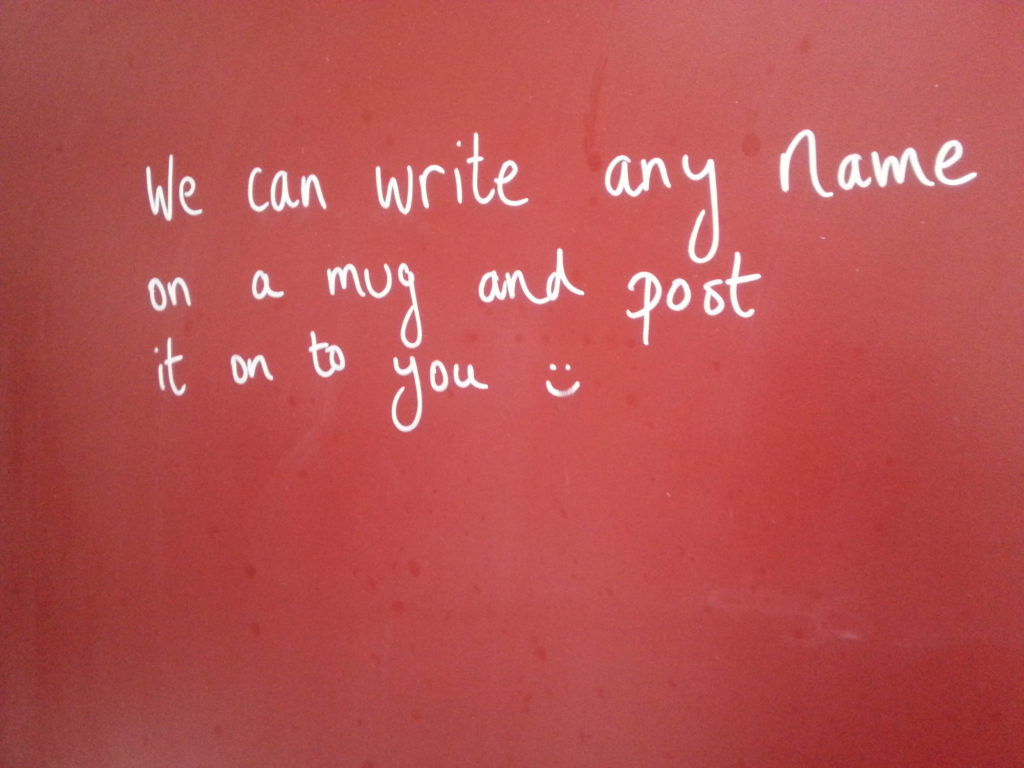 We can write any name
on a mug and post
it on to you :)